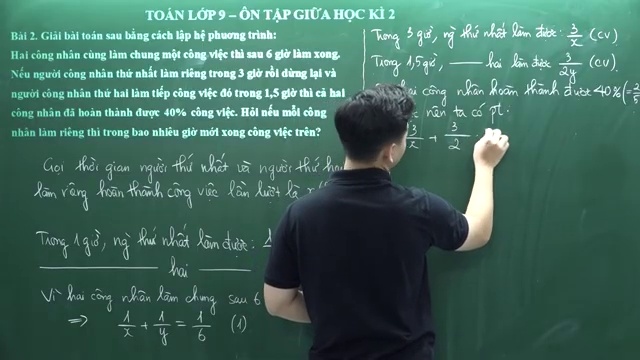 TOÁN LỚP 9 – ÔN TẬP GIỮA HỌC KÌ 2
Bài 2. Giải bài toán sau bằng cách lập hệ phương trình:
Hai công nhân cùng làm chung một công việc thì sau 6 giờ làm xong.
Nếu người công nhân thứ nhất làm riêng trong 3 giờ rồi dừng lại và
người công nhân thứ hai làm tiếp công việc đó trong 1,5 giờ thì cả hai
công nhân đã hoàn thành được 40% công việc. Hỏi nếu mỗi công
nhân làm riêng thì trong bao nhiêu giờ mới xong công việc trên?
Gọi thời gian người thứ nhất và người thứ
làm riêng hoàn thành công việc lần lượt là
Trong 1 giờ, ng thứ nhất làm được:
hai
Vì hai công nhân làm chung sau 6
=> 1/x + 1/y = 1/6 (1)
Trong 3 giờ, ng thứ nhất làm được: 3/x (CV)
Trong 1,5 giờ, hai làm được 3/2y (CV)
công nhân hoàn thành được 40%
nên ta có pt:
3/x + 3/2